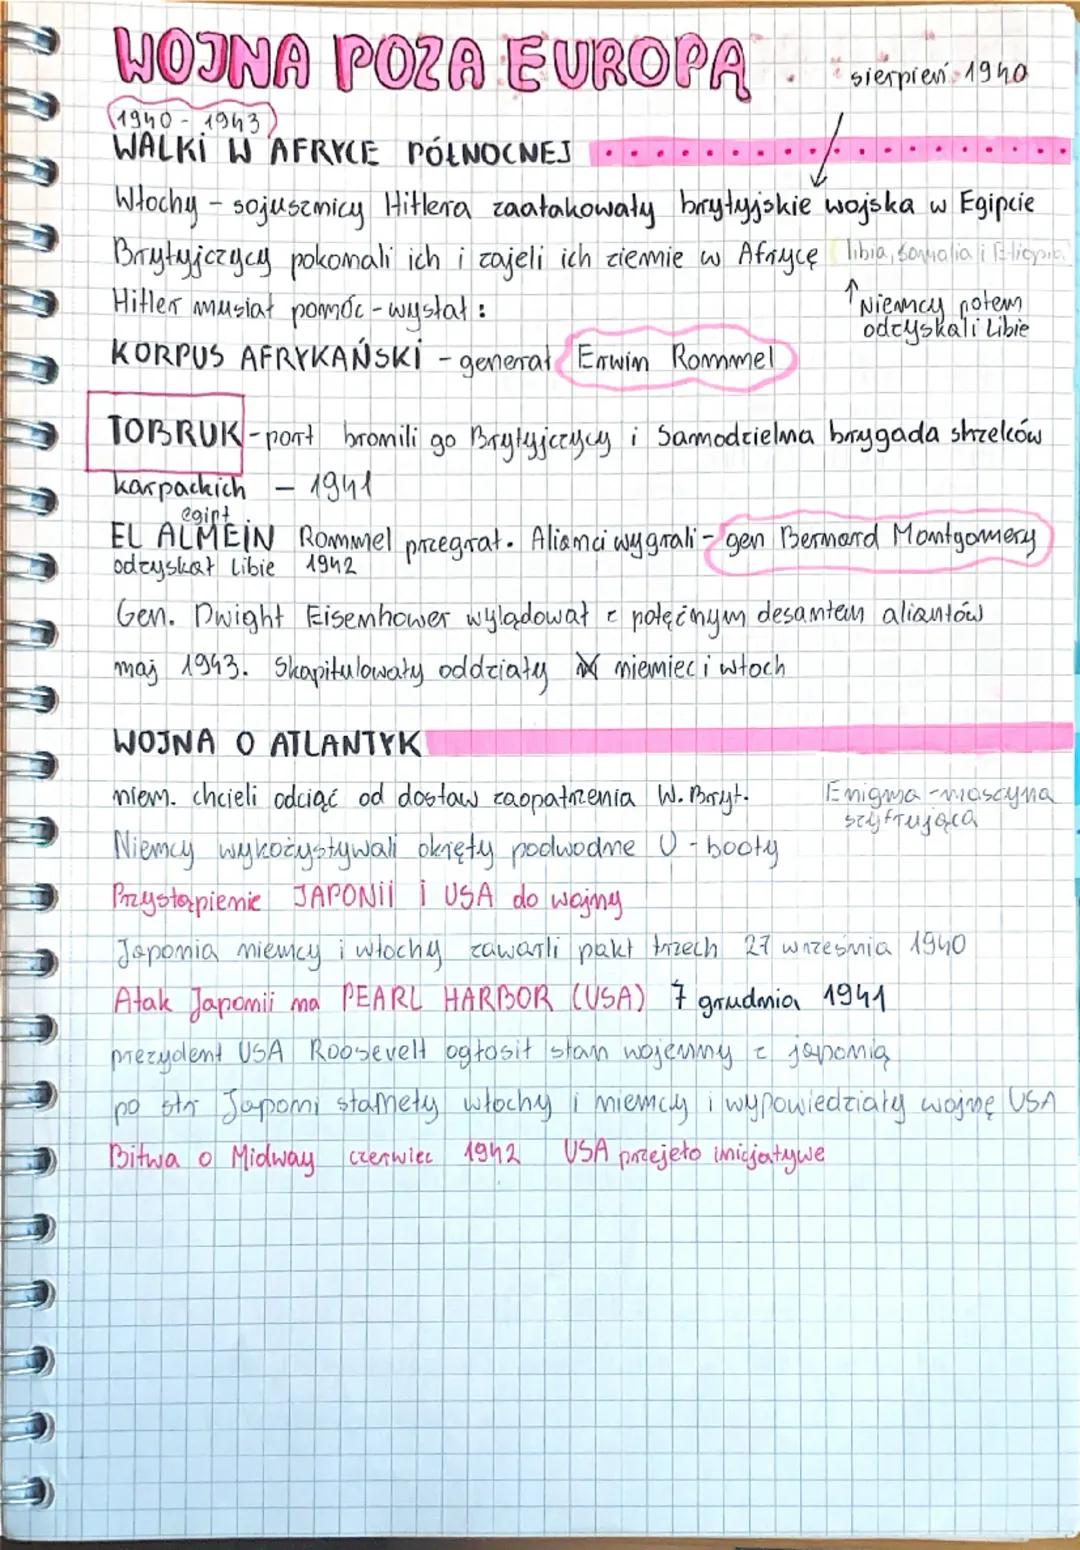 WOJNA POZA EUROPĄ
sierpień 1940
1940 - 1943
WALKI W AFRYCE PÓŁNOCNEJ
Włochy - sojusznicy Hitlera zaatakowały brytyjskie wojska w Egipcie
Brytyjczycy pokonali ich i zajeli ich ziemie w Afrycę libia, Somalia i Etiopia
Hitler musiał pomóc - wysłał :
↑ Niemcy potem
odzyskali Libie
KORPUS AFRYKAŃSKI - generał Erwin Rommel
TOBRUK - port bronili go Brytyjczycy i Samodzielna brygada strzelców
karpackich - 1941
egipt
EL ALMEIN Rommel przegrał. Alianci wygrali - gen Bernard Montgomery
odzyskał Libie 1942
Gen. Dwight Eisenhower wylądował z potężnym desantem aliantów
maj 1943. Skapitulowały oddziały niemiec i włoch
WOJNA O ATLANTYK
niem. chcieli odciąć od dostaw zaopatrzenia W. Bryt.
Enigma - maszyna
szyfrująca
Niemcy wykożystywali okręty podwodne U - booty
Przystąpienie JAPONII i USA do wojny
Japonia niemcy i włochy zawarli pakt trzech 27 września 1940
Atak Japonii na PEARL HARBOR (USA) 7 grudnia 1941
prezydent USA Roosevelt ogłosił stan wojenny z japonią
po str Japoni staneły włochy i niemcy i wypowiedziały wojnę USA
Bitwa o Midway czerwiec 1942 USA przejęło inicjatywe